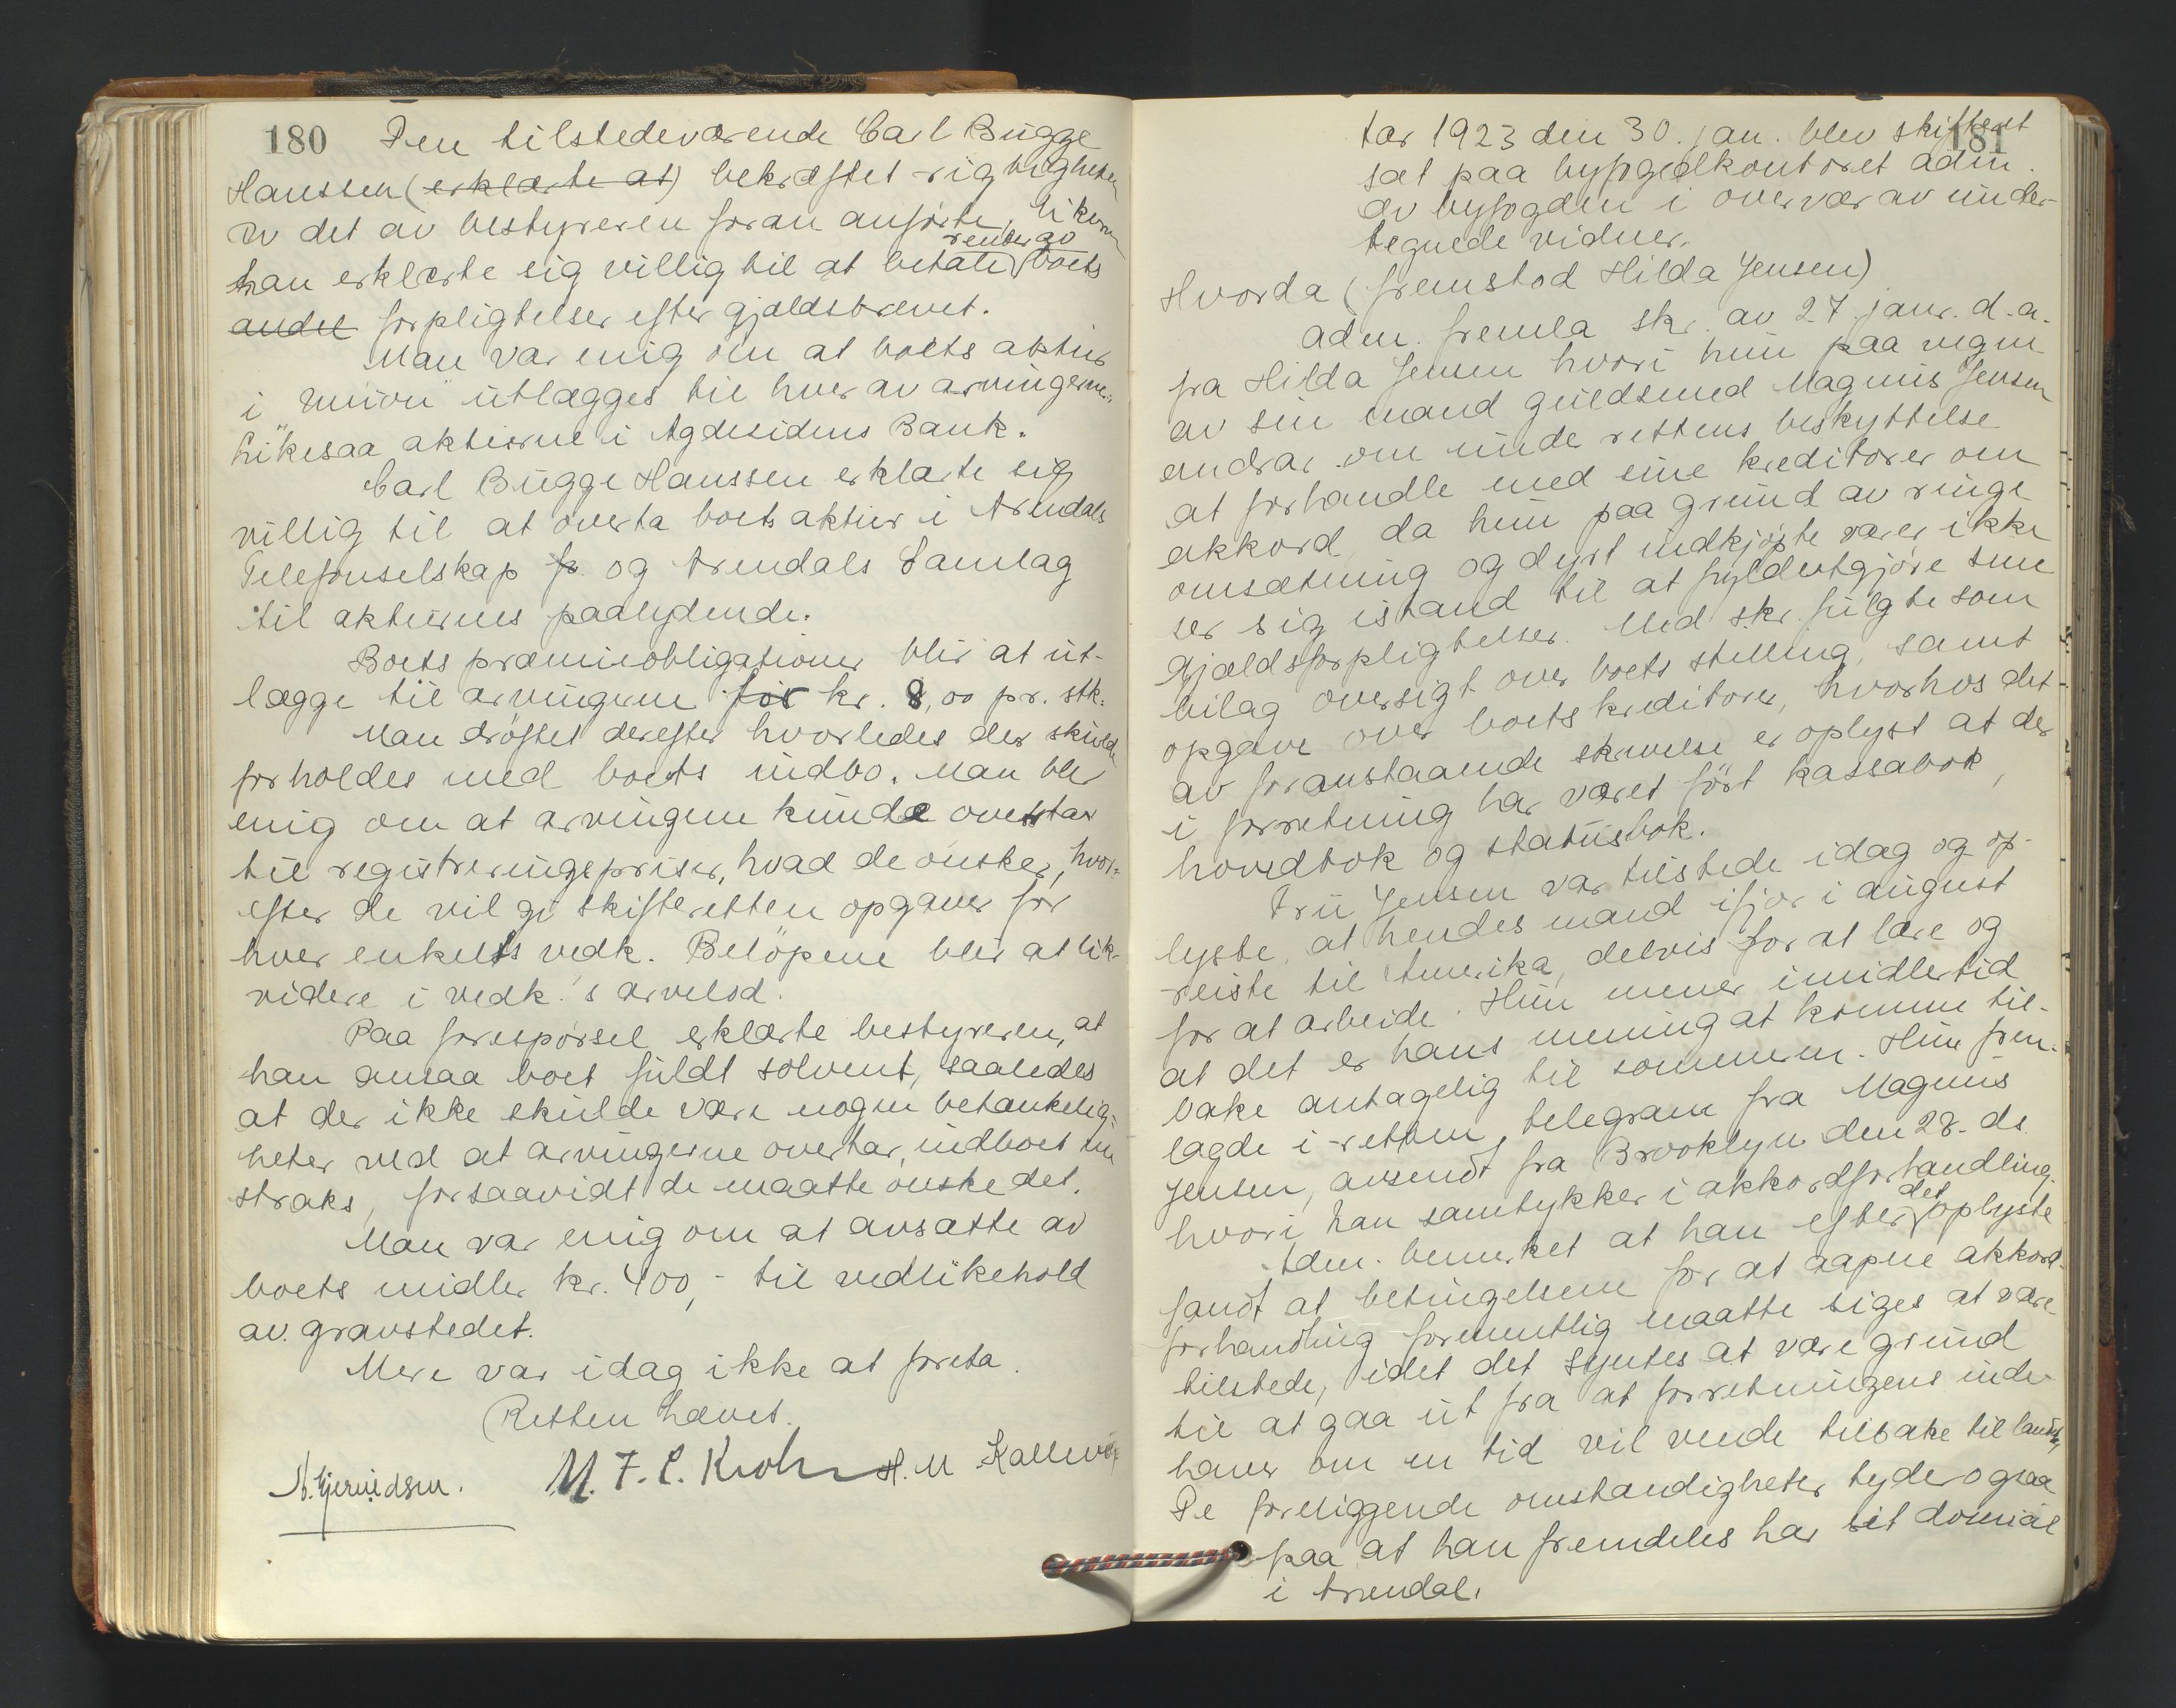 180 Den tilstedeværende Carl Bugge
Hanssen (erklærte at) bekræftet rigtigheten
av det av bestyreren foran anførte, likesom
renter av
han erklærte sig villig til at betale boets
andel forpligtelser efter gjældsbrevet.
Man var enig om at boets aktier
i "Union" utlægges til hver av arvingerne.
Likesaa aktierne i Agdesidens Bank.
Carl Bugge Hanssen erklærte sig
villig til at overta boets aktier i Arendals
Telefonselskap og Arendals Samlag
til aktiernes paalydende.
Boets præmieobligationer blir at ut-
lægge til arvingerne for kr. 8,00 pr. stk.
Man drøftet derefter hvorledes der skulde
forholdes med boets indbo. Man blev
enig om at arvingerne kunde overtar
til registreringspriser, hvad de ønsker, hvor-
efter de vil gi skifteretten opgaver for
hver enkelts vedk. Beløpene blir at lik-
videre i vedk.'s arvelod.
Paa forespørsel erklærte bestyreren, at
han ansaa boet fuldt solvent, saaledes
at der ikke skulde være nogen betænkelig-
heter ved at arvingerne overtar indboet nu
straks, forsaavidt de maatte ønske det.
Man var enig om at avsætte av
boets midler kr. 400,- til vedlikehold
av gravstedet.
Mere var idag ikke at foreta.
Retten hævet.
M. F. C. Krohn H. M.
181
Aar 1923 den 30. jan. blev skifteret
sat paa byfogedkontoret adm.
av byfogden i overvær av under-
tegnede vidner.
Hvorda (fremstod Hilda Jensen)
Adm. fremla skr. av 27. janr. d.a.
fra Hilda Jensen hvori hun paa vegne
av sin mand guldsmed Magnus Jensen
andrar om unde rettens beskyttelse
at forhandle med sine kreditorer om
akkord, da hun paa grund av ringe
omsætning og dyrt indkjøpte varer ikke
ser sig istand til at fyldestgjøre sine
gjældsforpligtelser. Med skr. fulgte som
bilag oversigt over boets stilling, samt
opgave over boets kreditorer, hvorhos det
av foranstaaende skrivelse er oplyst at der
i forretning har været ført kassabok,
hovedbok og statusbok.
Fru Jensen var tilstede idag og op-
lyste, at hendes mand ifjor i august
reiste til Amerika, delvis for at lære og
for at arbeide. Hun mener imidlertid
at det er hans mening at komme til-
bake antagelig til sommeren. Hun frem-
lagde i retten telegram fra Magnus
Jensen, avsendt fra Brooklyn den 28. ds.
hvori han samtykker i akkordforhandling.
det
Adm. bemerket at han efter oplyste
fandt at betingelsene for at aapne akkord-
forhandling formentlig maatte siges at være
tilstede, idet det syntes at være grund
til at gaa ut fra at forretningens inde-
haver om en tid vil vende tilbake til landet,
De foreliggende omstændigheter tyder ogsaa
paa at han fremdeles har sit domicil
i Arendal.